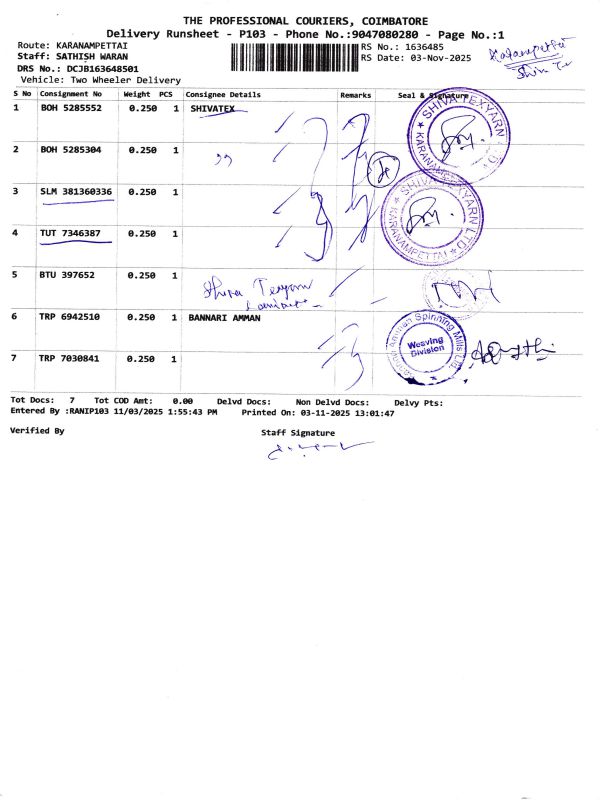 THE PROFESSIONAL COURIERS, COIMBATORE
Delivery Runsheet - P103 - Phone No.:9047080280 - Page No.:1
Route: KARANAMPETTAI
RS No.: 1636485
Karanampettai
Staff: SATHISH WARAN
RS Date: 03-Nov-2025
DRS No.: DCJB163648501
Vehicle: Two Wheeler Delivery
S No Consignment No Weight PCS Consignee Details Remarks Seal & Signature
1 BOH 5285552 0.250 1 SHIVATEX
SHIVA TEXYARN LTD. KARANAMPETTAI
2 BOH 5285304 0.250 1 ,,
3 SLM 381360336 0.250 1
SHIVA TEXYARN LTD KARANAMPETTAI
4 TUT 7346387 0.250 1
5 BTU 397652 0.250 1 Shiva Texyarn
6 TRP 6942510 0.250 1 BANNARI AMMAN
Bannari Amman Spinning Mills Ltd. Weaving Division
7 TRP 7030841 0.250 1
Tot Docs: 7 Tot COD Amt: 0.00 Delvd Docs: Non Delvd Docs: Delvy Pts:
Entered By :RANIP103 11/03/2025 1:55:43 PM Printed On: 03-11-2025 13:01:47
Verified By Staff Signature